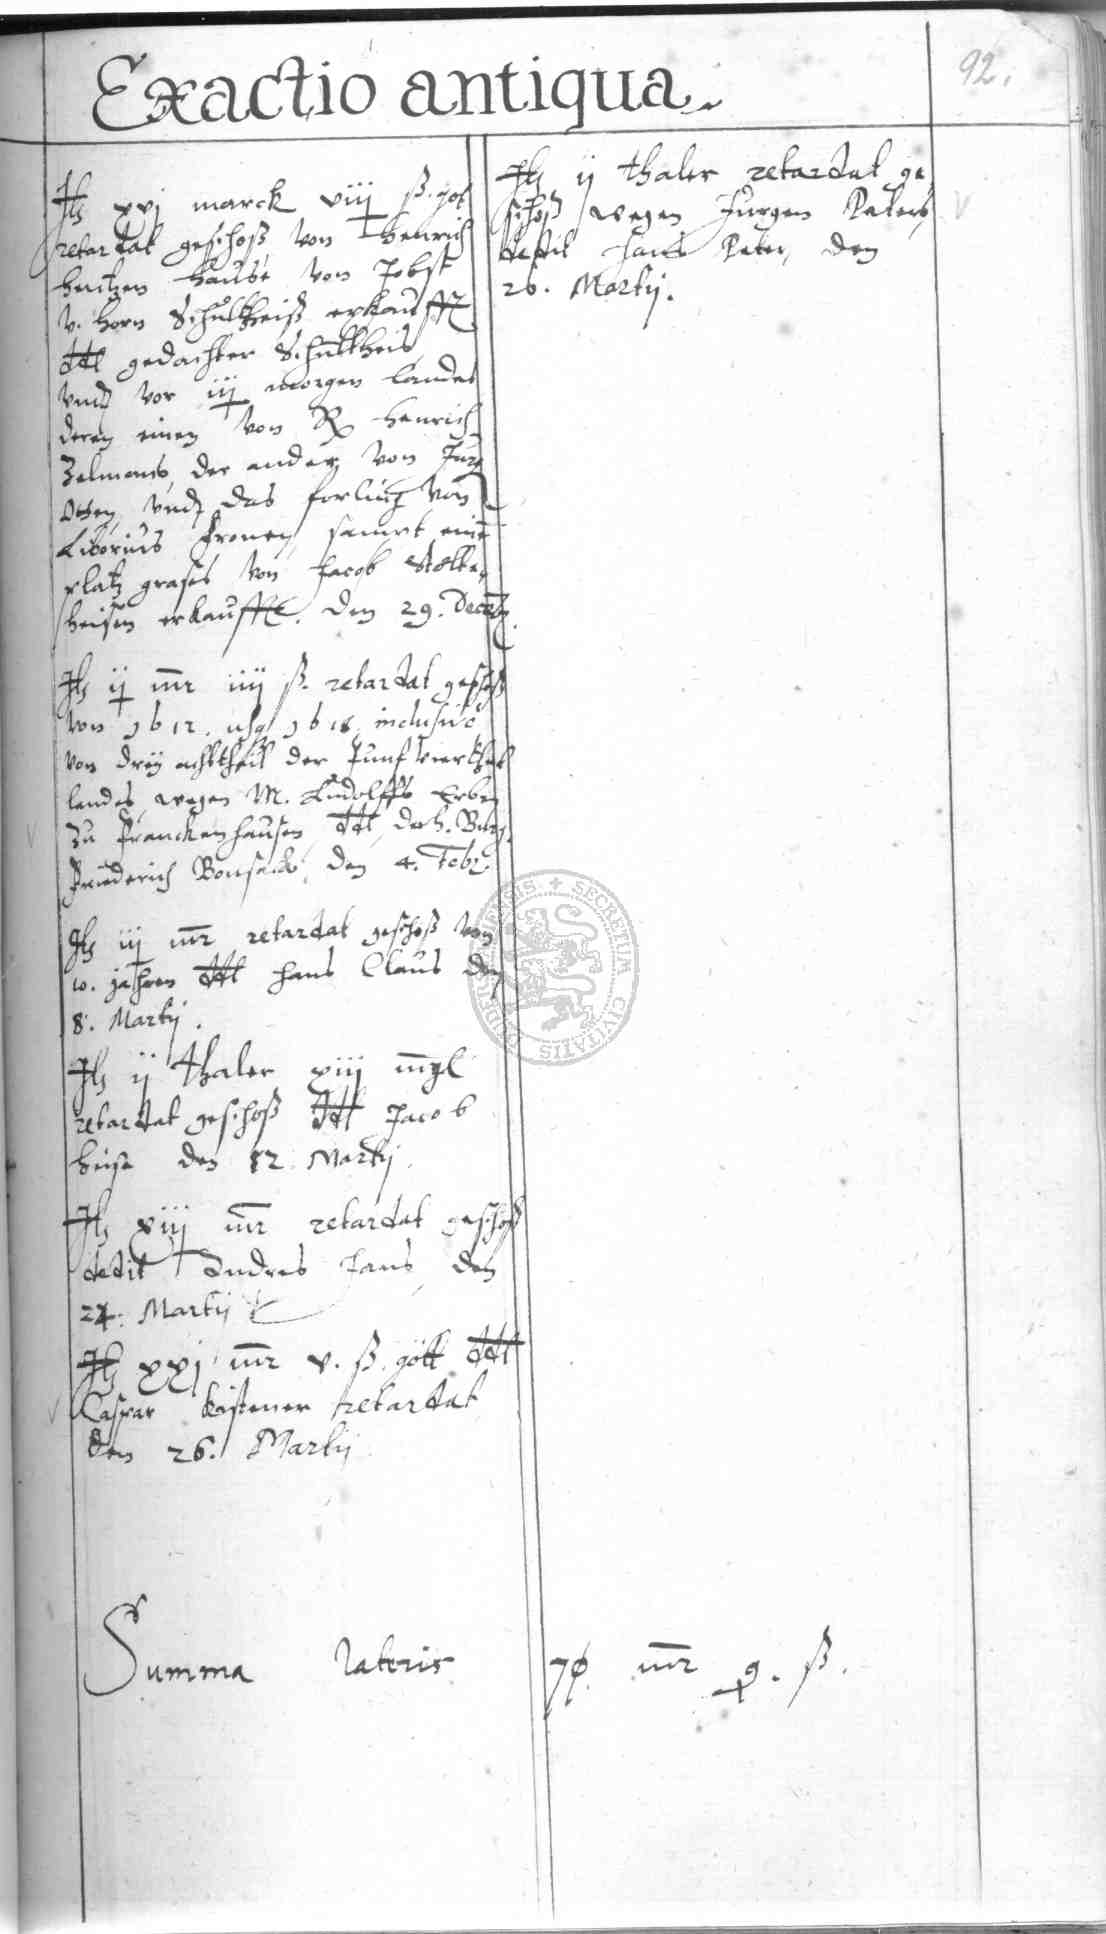 92.
Exactio antiqua.
Itz xxj marck viij ß. got
retardat geschoß von Henrich
Heitzen hause von Jobst
v. Horn Schultheiß erkaufft
dedit gedachter Schultheis
Undt vor iij morgen landes
deren einen von R Henrich
Zelmans, der ander von Jurg
Otten, undt das forling von
Liborius Fronen, sampt eine
platz grases von Jacob
heisen erkaufft. den 29. Decemb.
Itz ij mr iiij ß. retardat geschoß
von 1612. usq 1618. inclusive
von drey achttheil der funf viertheil
landes, wegen M. Ludolffs Erben
zu Franckenhausen ddt, der h. Burg.
Friederich Bonsack, den 4. Febr.
Itz iij mr retardat geschoß von
10. jahren ddt Hans Claus den
8. Martij.
Itz ij thaler xiij mgl
retardat geschoß ddt Jacob
Heise den 12. Martij.
Itz xiij mr retardat geschoß
dedit Andres Hans den
24. Martij
Itz xxj mr v. ß. gött ddt
Caspar Kistener retardat
den 26. Martij
Itz ij thaler retardat ge
schoß wegen Jurgen Peters,
dedit Hans Peter, den
26. Martij.
Summa lateris 70 mr 9. ß.
SECRETUM CIVITATIS